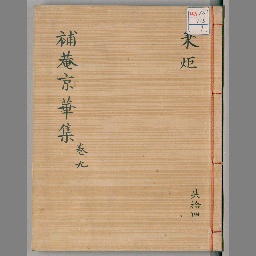 秉炬
補菴京華集 巻九
共拾四